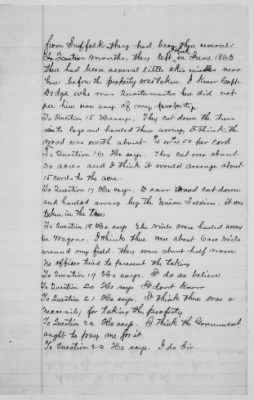 from Suffolk they had been there several
months, they left in June 1863
There had been several little skirmishes near
here before the property was taken I knew Capt
Dodge who was Quartermaster he did not
see him use any of my property
To Question 15 He says. They cut down the trees
and hauled them away, I think the
wood was worth about per cord
To Question 16 He says. They cut over about
acres and I think it would average about
15 cords to the acre.
To Question 17 He says. I saw wood cut down
and hauled away by the Union Soldiers. it was
taken in the
To Question 18 He says The rails were hauled away
in Wagons. I think there was about 6000 rails
around my field. They were about half worn
No officer tried to prevent the taking
To Question 19 He says. I do so believe
To Question 20 He says I don't know
To Question 21 He says. I think there was a
necessity for taking the property
To Question 22 He says. I think the Government
ought to pay me for it
To Question 23 He says. I do Sir